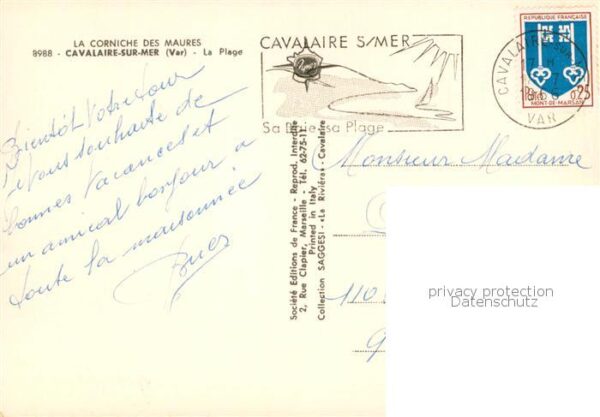 LA CORNICHE DES MAURES
8988 - CAVALAIRE-SUR-MER (Var) - La Plage
Bientôt Votre tour
je vous souhaite de
bonnes vacances et
un amical bonjour a
toute la maisonnée
CAVALAIRE S/MER
Sa Baie sa Plage
REPUBLIQUE FRANÇAISE
0,25
MONT-DE-MARSAN
CAVALAIRE-SUR-MER
VAR
Société Editions de France - Reprod. Interdite
2, Rue Clapier, Marseille - Tél. 62-75-11
Printed in Italy
Collection SAGGESI - «La Riviéra» - Cavalaire
Monsieur Madame
110
9
privacy protection
Datenschutz